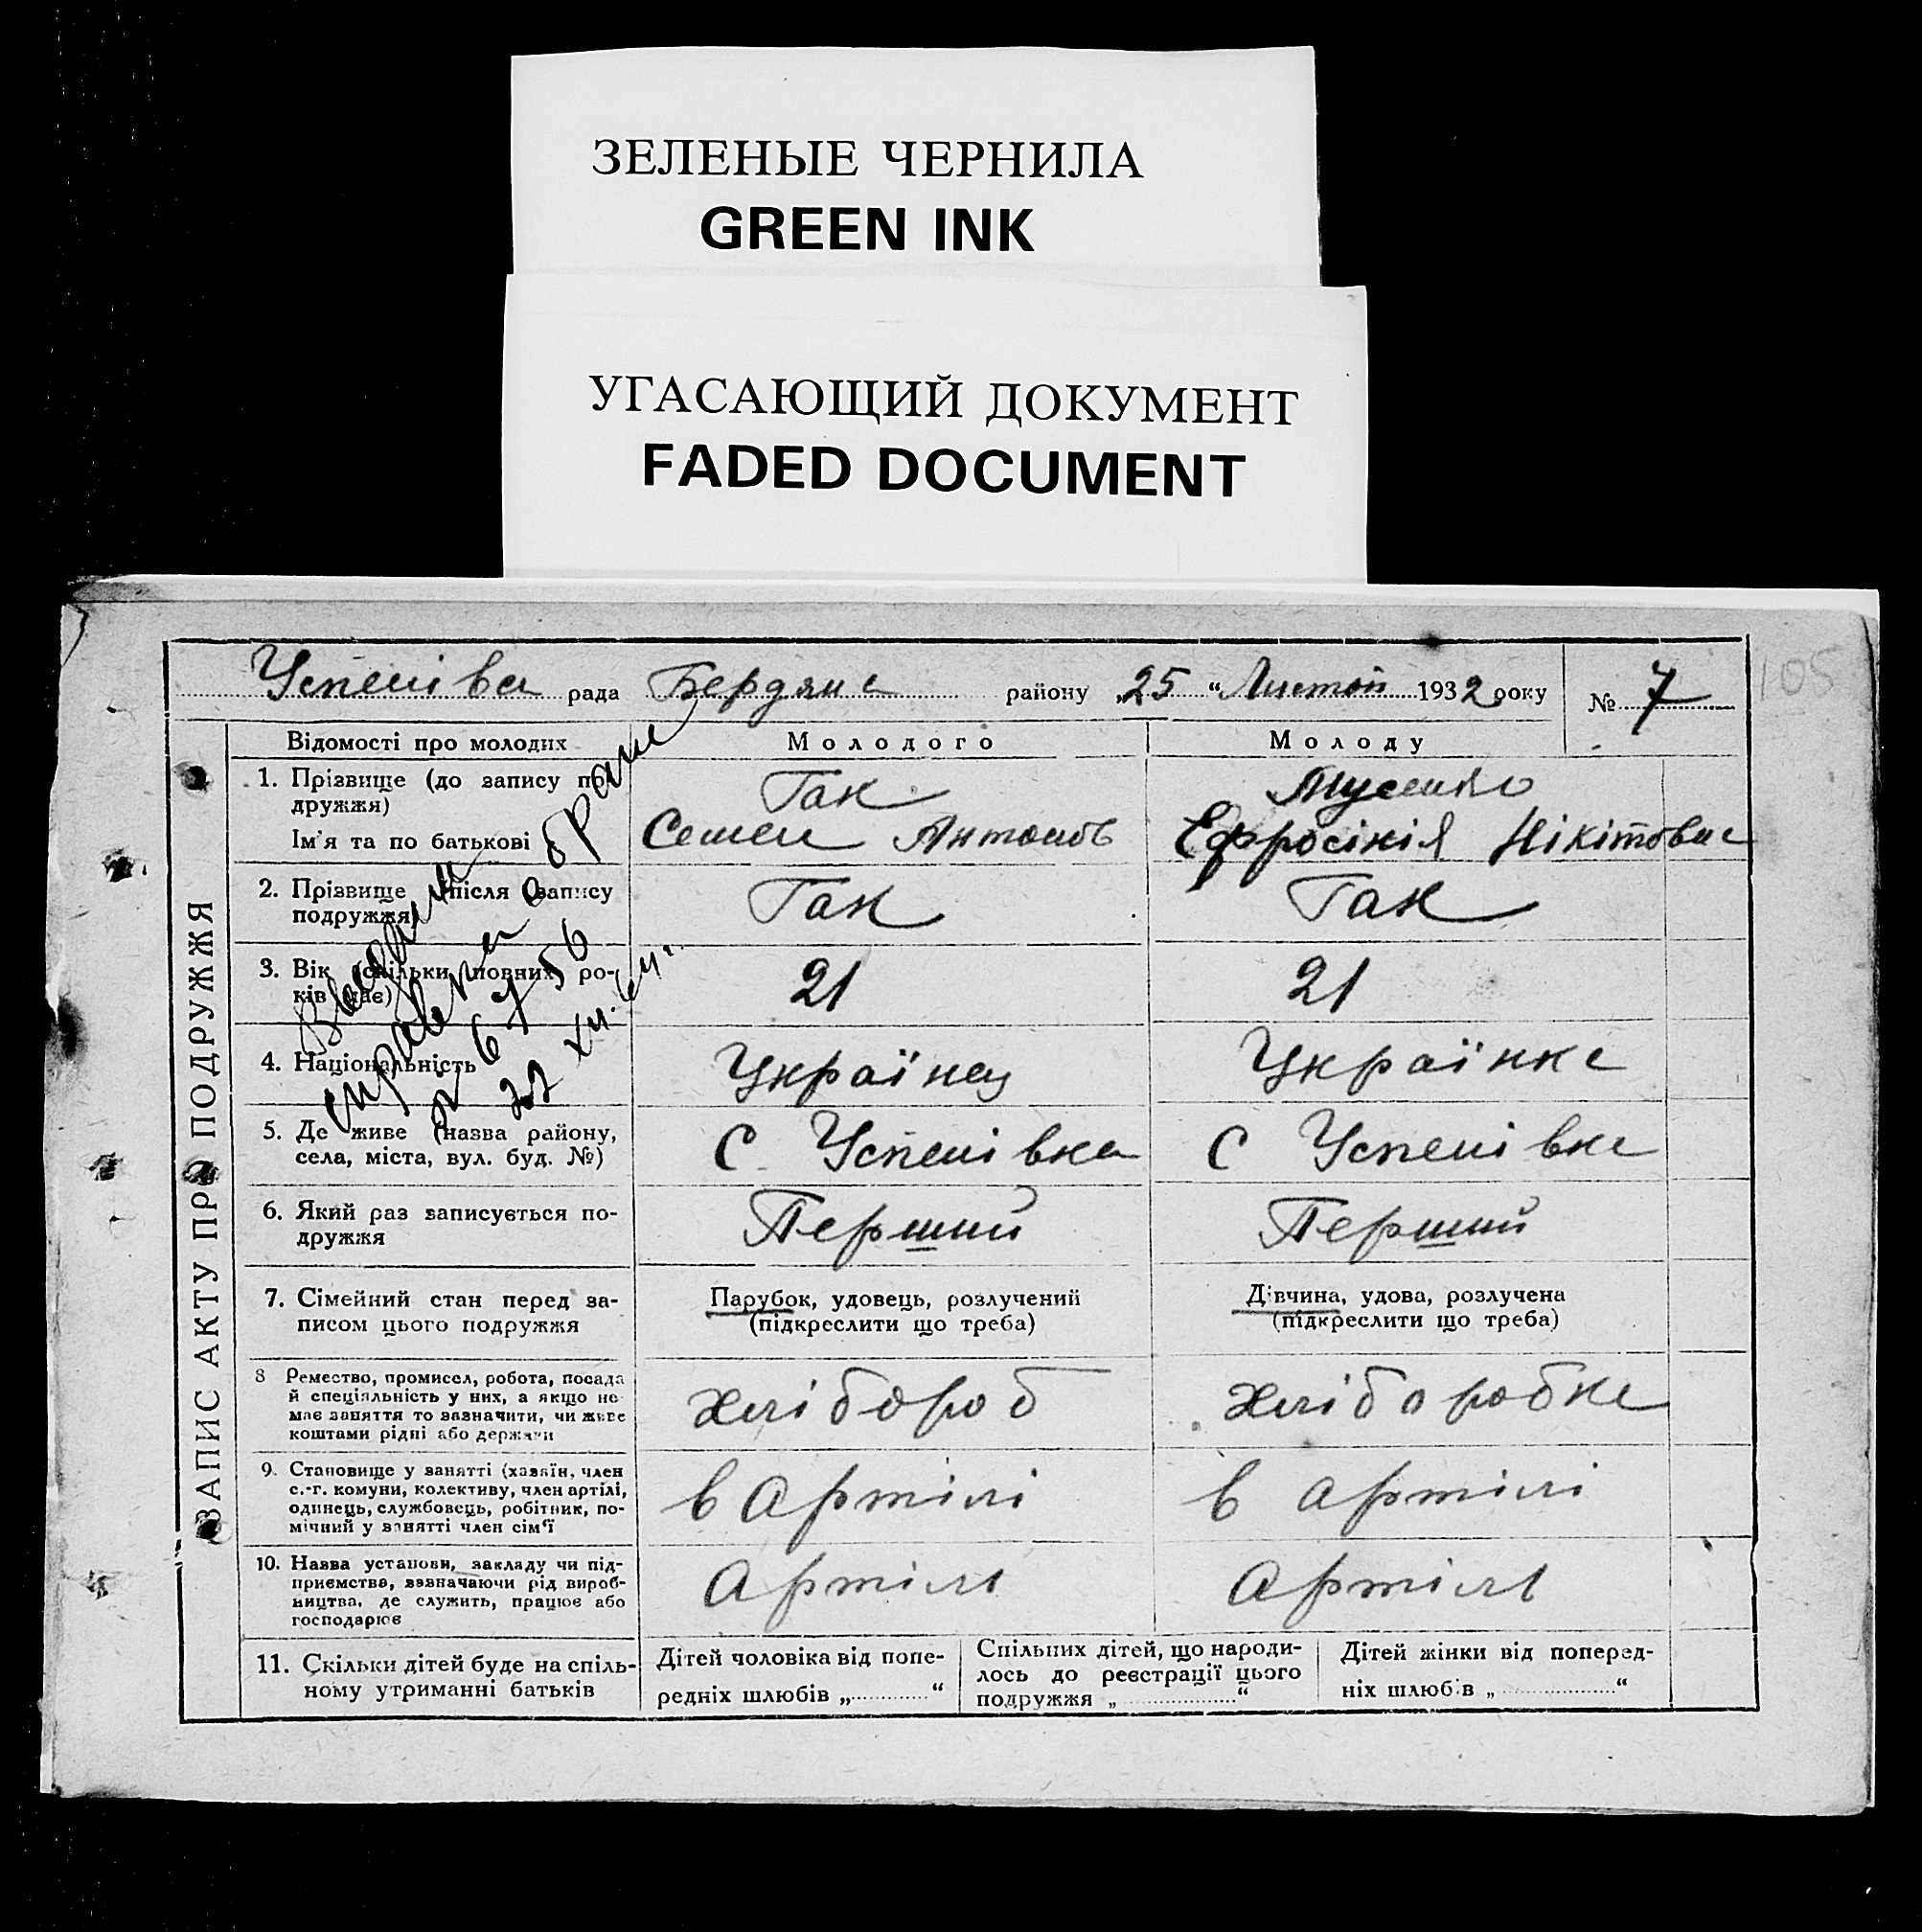 ЗЕЛЕНЫЕ ЧЕРНИЛА
GREEN INK
УГАСАЮЩИЙ ДОКУМЕНТ
FADED DOCUMENT
105
Успенівсн рада Бердянс району „25“ Листоп 1932 року № 7
ЗАПИС АКТУ ПРО ПОДРУЖЖЯ
Відомості про молодих
Молодого
Молоду
1. Прізвище (до запису по-
дружжя)
Гак
Ім'я та по батькові
Семен Антонов
Ефросінія Нікітовне
2. Прізвище після запису
подружжя
Гак
Гак
3. Вік (скільки повних ро-
ків має)
21
21
4. Національність
Українец
Українке
5. Де живе (назва району,
села, міста, вул. буд. №)
с Успенівка
с Успенівке
6. Який раз записується по-
дружжя
Перший
Перший
7. Сімейний стан перед за-
писом цього подружжя
Парубок, удовець, розлучений
(підкреслити що треба)
Дівчина, удова, розлучена
(підкреслити що треба)
8 Ремество, промисел, робота, посада
й спеціяльність у них, а якщо не
має заняття то зазначити, чи живе
коштами рідні або держави
хлібороб
хліборобке
9. Становище у занятті (хазяїн, член
с.-г. комуни, колективу, член артілі,
одинець, службовець, робітник, по-
мічний у занятті член сім'ї
в Артілі
в Артілі
10. Назва установи, закладу чи під-
приємства, зазначаючи рід вироб-
ництва, де служить, працює або
господарює
Артілі
Артілі
11. Скільки дітей буде на спіль-
ному утриманні батьків
Дітей чоловіка від попе-
редніх шлюбів „ “
Спільних дітей, що народи-
лось до реєстрації цього
подружжя „ “
Дітей жінки від поперед-
ніх шлюбів „ “